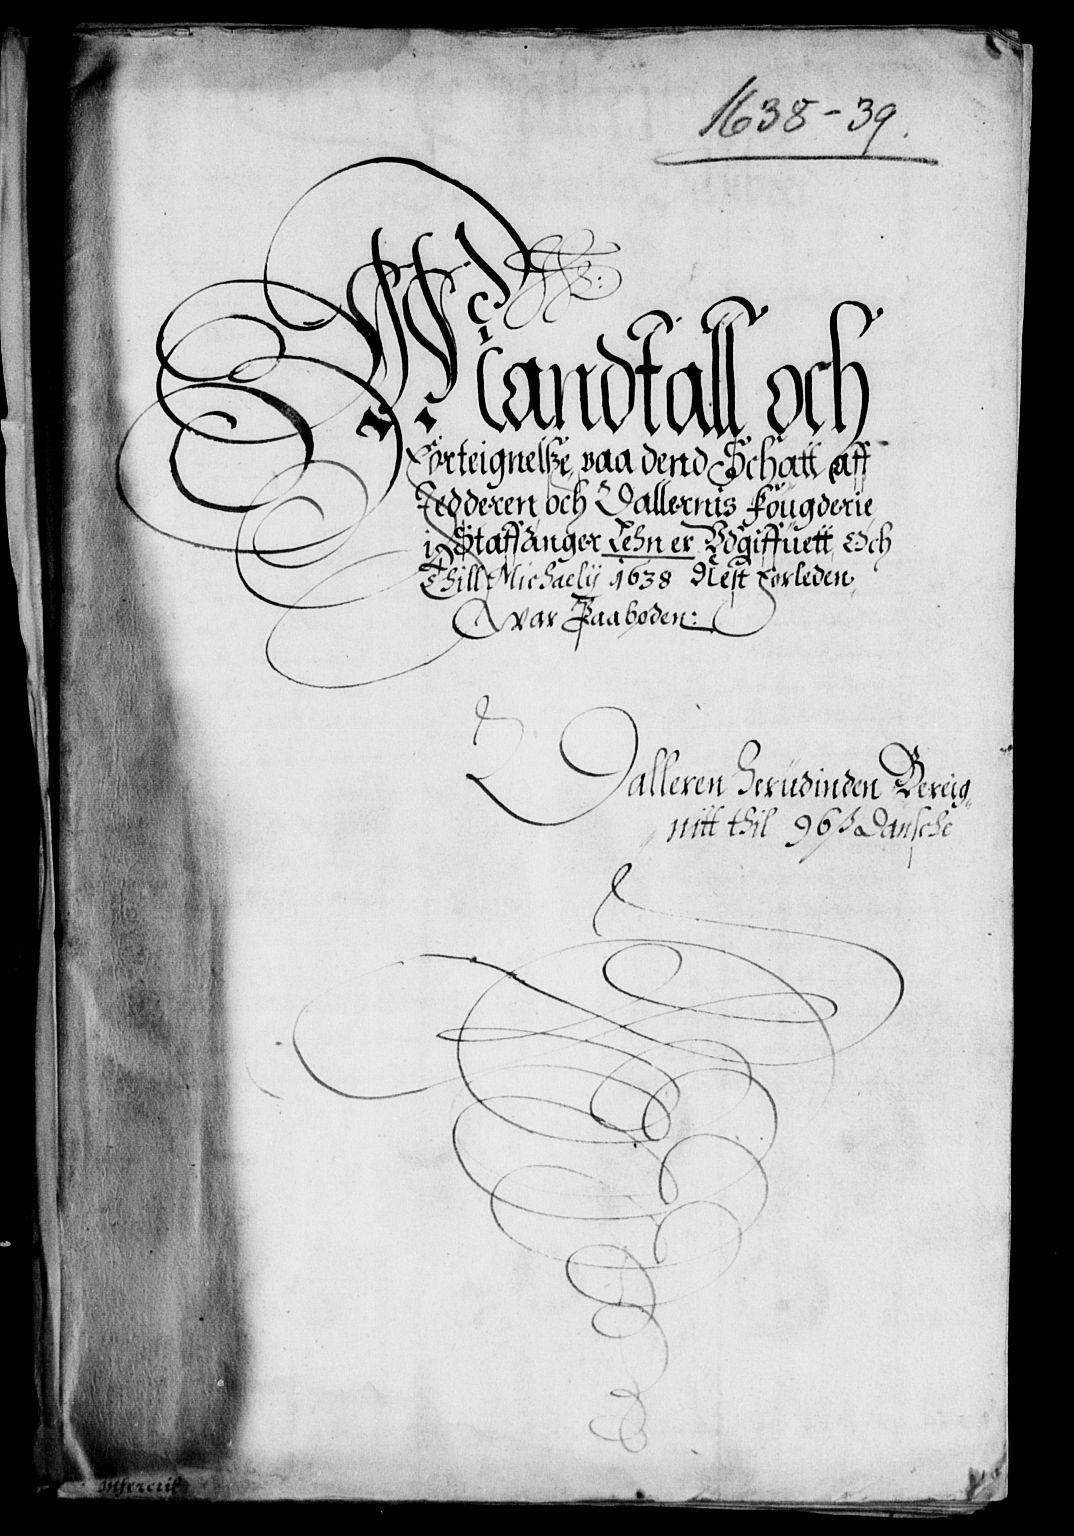 1638-39.
Mandtall och
Forteignelsze paa dend Schatt aff
Jedderen och Dallernis Fougderie
i Staffanger Lehn er Udgiffuett Och
Thill Michaelij 1638 Nest forleden
war Paaboden:
Dalleren herudinden Bereig„
nitt thil 96 ß Dansche